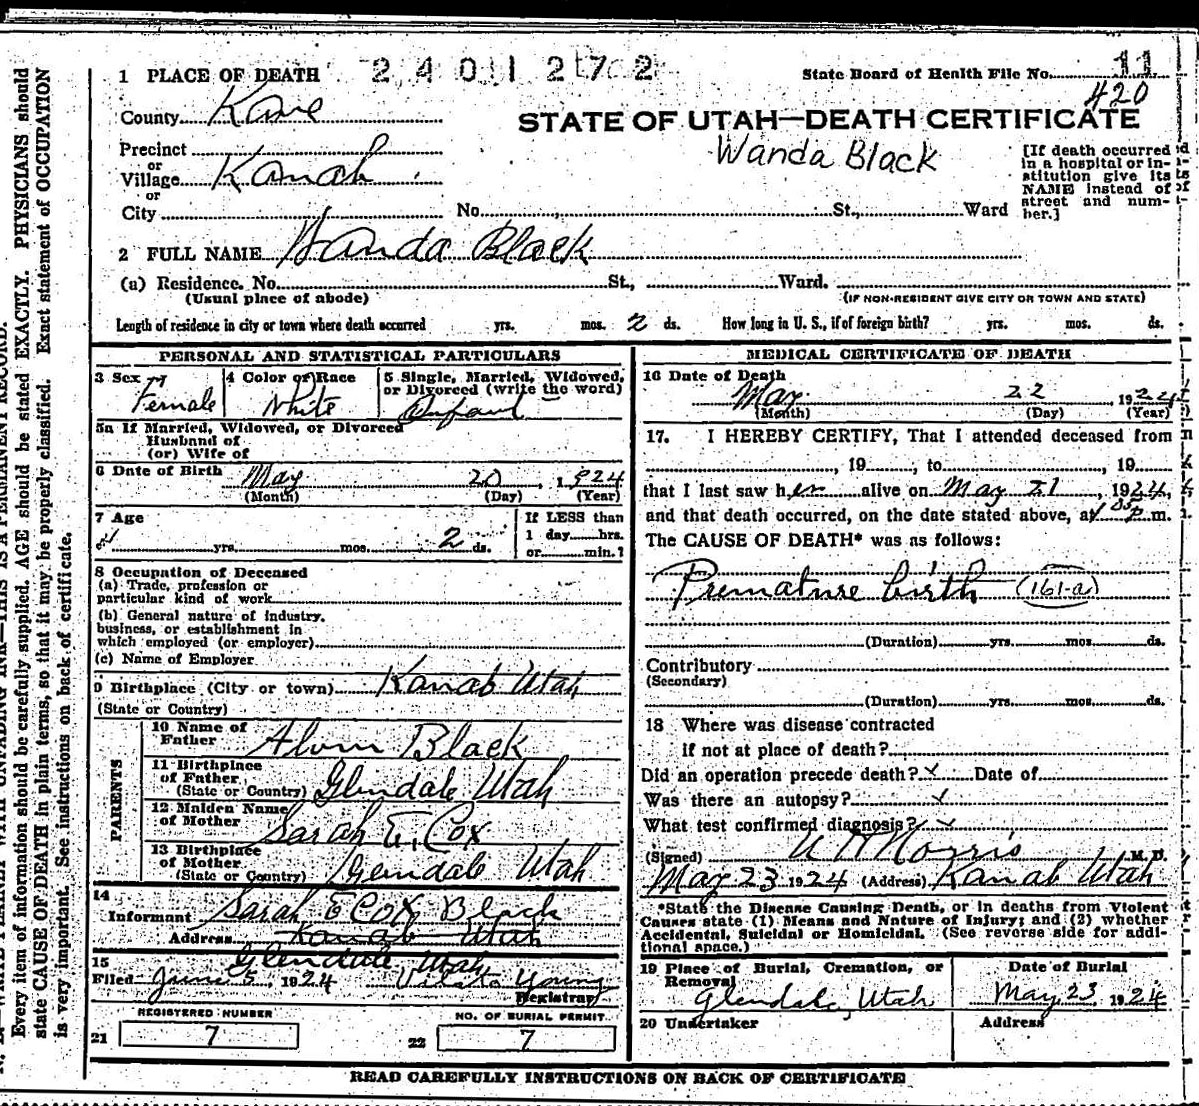 1 PLACE OF DEATH 2401272 State Board of Health File No. 11
420
County Kane
STATE OF UTAH—DEATH CERTIFICATE
Wanda Black
Precinct
or
Village Kanab
or
City No. St., Ward
[If death occurred in a hospital or in-
stitution give its
NAME instead of
street and num-
ber.]
2 FULL NAME Wanda Black
(a) Residence. No. St., Ward.
(Usual place of abode) (IF NON-RESIDENT GIVE CITY OR TOWN AND STATE)
Length of residence in city or town where death occurred yrs. mos. 2 ds. How long in U. S., if of foreign birth? yrs. mos. ds.
PERSONAL AND STATISTICAL PARTICULARS
3 Sex Female
4 Color or Race White
5 Single, Married, Widowed,
or Divorced (write the word)
Infant
5a If Married, Widowed, or Divorced
Husband of
(or) Wife of
6 Date of Birth May 20, 1924
(Month) (Day) (Year)
7 Age yrs. mos. 2 ds.
If LESS than
1 day hrs.
or min.?
8 Occupation of Deceased
(a) Trade, profession or
particular kind of work
(b) General nature of industry,
business, or establishment in
which employed (or employer)
(c) Name of Employer
9 Birthplace (City or town) Kanab Utah
(State or Country)
PARENTS
10 Name of
Father Black
11 Birthplace
of Father
(State or Country) Glendale Utah
12 Maiden Name
of Mother Sarah E. Cox
13 Birthplace
of Mother
(State or Country) Glendale Utah
14
Informant Sarah E Cox Black
Address Kanab Utah
Glendale Utah
15
Filed June 5, 1924 Young
Registrar
REGISTERED NUMBER
21 7
NO. OF BURIAL PERMIT
22 7
MEDICAL CERTIFICATE OF DEATH
16 Date of Death
May 22 1924
(Month) (Day) (Year)
17. I HEREBY CERTIFY, That I attended deceased from
, 19 , to , 19
that I last saw her alive on May 21, 1924,
and that death occurred, on the date stated above, at P. m.
The CAUSE OF DEATH* was as follows:
Premature birth (161-a)
(Duration) yrs. mos. ds.
Contributory
(Secondary)
(Duration) yrs. mos. ds.
18 Where was disease contracted
if not at place of death?
Did an operation precede death? Date of
Was there an autopsy?
What test confirmed diagnosis?
(Signed) Norris M. D.
May 23 1924 (Address) Kanab Utah
*State the Disease Causing Death, or in deaths from Violent
Causes state (1) Means and Nature of Injury; and (2) whether
Accidental, Suicidal or Homicidal. (See reverse side for addi-
tional space.)
19 Place of Burial, Cremation, or
Removal
Glendale, Utah
Date of Burial
May 23 1924
20 Undertaker
Address
READ CAREFULLY INSTRUCTIONS ON BACK OF CERTIFICATE
Every item of information should be carefully supplied. AGE should be stated EXACTLY. PHYSICIANS should
state CAUSE OF DEATH in plain terms, so that it may be properly classified. Exact statement of OCCUPATION
is very important. See instructions on back of certificate.